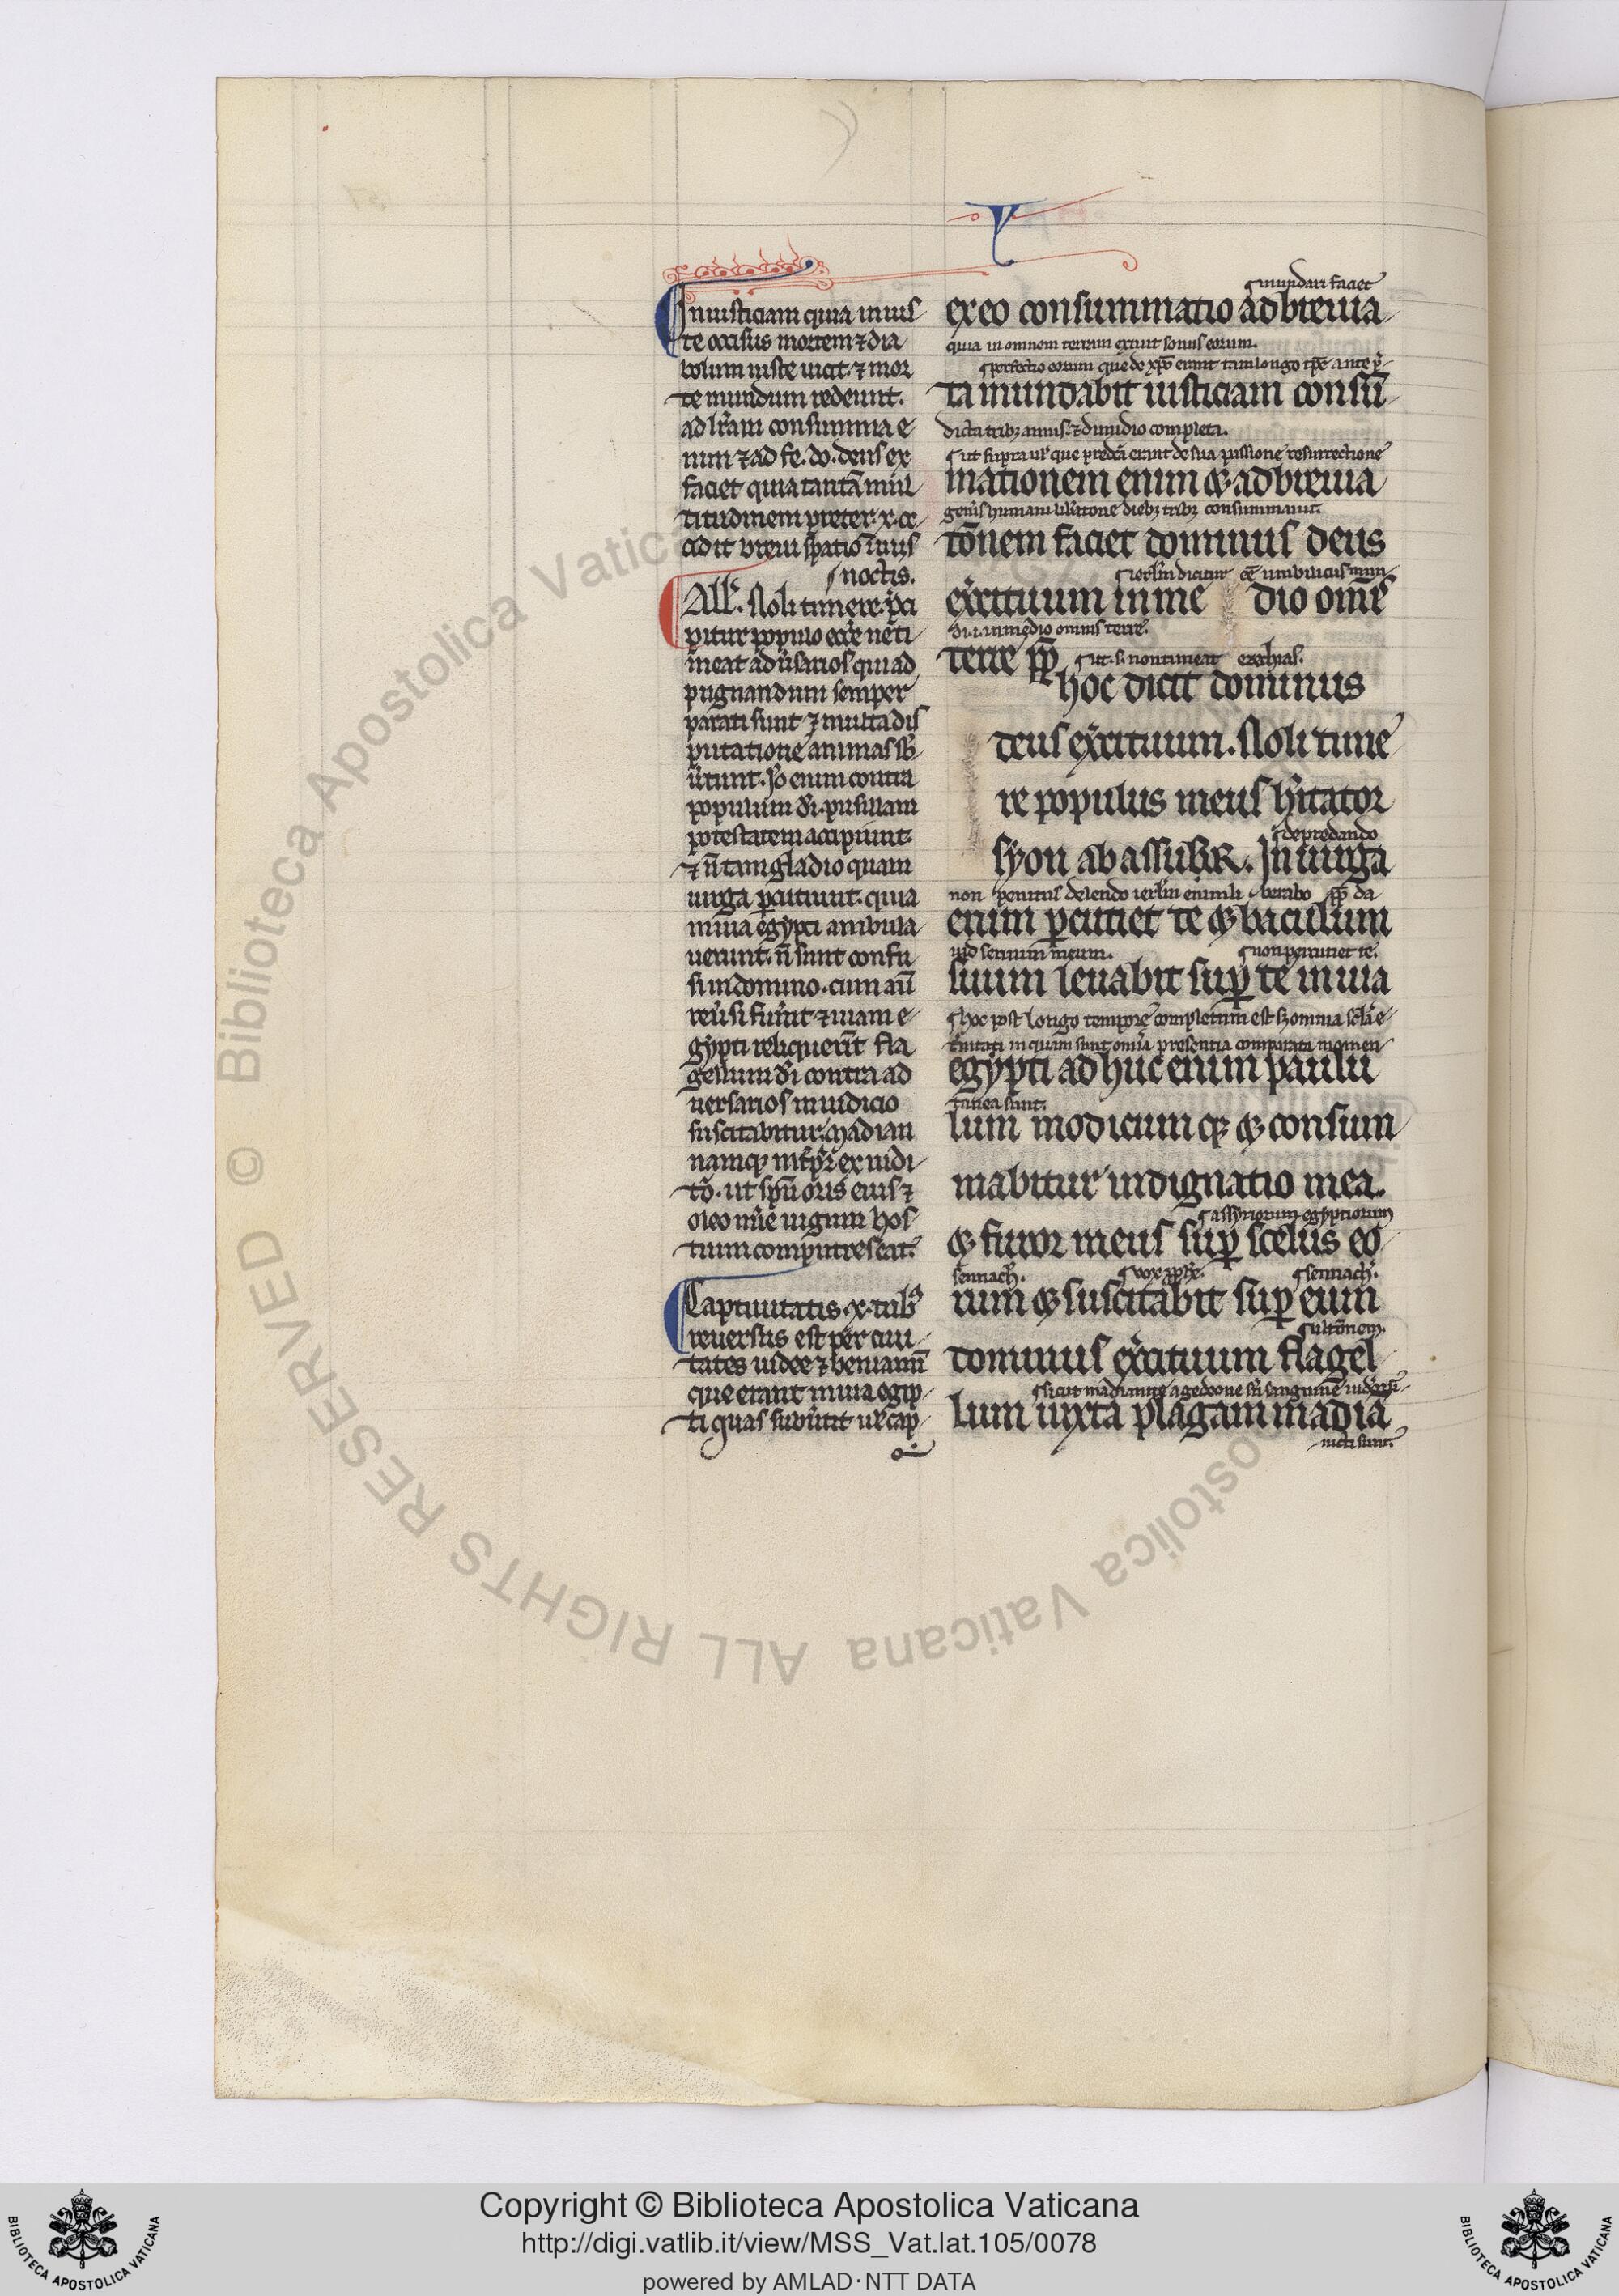 Y
Iniusticiam quia inius
te occisus mortem ⁊ dia
bolum iuste uicit ⁊ mor
te mundum redeunt.
ad lr̄am consumma e
nim ⁊ ad fe. do. deus ex
faciet quia tantā mul
titudinem preter .x. ce
cidit breui spatio unius
noctis.
All'. Noli timere. p̄ci
pitur populo ecc̄e ne ti
meat aduersarios qui ad
pugnandum semper
parati sunt ⁊ multa dis
putatione animas sb̄
u̓tunt. Jō enim contra
populum dī. pusillam
potestatem accipiunt.
⁊ n̄ tam gladio quam
uirga ꝑcutiunt. quia
in uia egypti ambula
uerunt. n̄ sunt confu
si in domino. cum aū
reu̓si fu̓int ⁊ uiam e
gypti reliquerīt fla
gellum dī contra ad
uersarios in iudicio
suscitabitur. madian
namq; int̓p̄r ex iudi
tō. ut sp̄u oris eius ⁊
oleo mīe iugum hos
tium computrescat.
Captiuitatis .x. tribꝰ
reuersus est per ciui
tates iudee ⁊ beniamī
que erant in uia egip
ti quas subu̓tit uel cap̄
mundari faciet
ex eo consummatio adbreuia
quia in omnem terram exiuit sonus eorum.
perfectio eorum que de xp̄o erant tam longo tp̄e ante p̄
ta inundabit iusticiam consū
dicta tribꝫ annis ⁊ dimidio completa.
ut supra uel que predc̄a erant de sua passione resurrectione
mationem enim ⁊ adbreuia
generis humani lib̓atione diebꝫ tribꝫ consummauit.
tōnem faciet dominus deus
ierlm̄ dicitur eē umbilicus mun
exercituum in me dio omīs
di. i. in medio omnis terre.
terre ꝓꝑ
ut. s. non timeat ezechias.
hoc dicit dominus
deus exercituum. Noli time
re populus meus habitator
depredando
syon ab assur. In uirga
non penitus delendo ierlm̄
enim ꝑcutiet te ⁊ baculum
seruum meum. non percutiet te.
suum leuabit suꝑ te in uia
hoc post longo tempore completum est sꝫ omnia sc̄la e
t̓nitati in quam sunt om̄ia presentia comparata momen
egypti ad huc enim paulu
tanea sunt.
lum modicumq; ⁊ consum
mabitur indignatio mea.
assyriorum egyptiorum
⁊ furor meus suꝑ scelus eo
sennach̓. uox ꝓph̄e. sennach̓.
rum ⁊ suscitabit suꝑ eum
ultōnem.
dominus exercituum flagel
sicut madianite a gedeone
lum iuxta plagam madiā
uicti sunt.
© Biblioteca Apostolica Vaticana ALL RIGHTS RESERVED
Copyright © Biblioteca Apostolica Vaticana
http://digi.vatlib.it/view/MSS_Vat.lat.105/0078
powered by AMLAD·NTT DATA
BIBLIOTECA APOSTOLICA VATICANA
BIBLIOTECA APOSTOLICA VATICANA